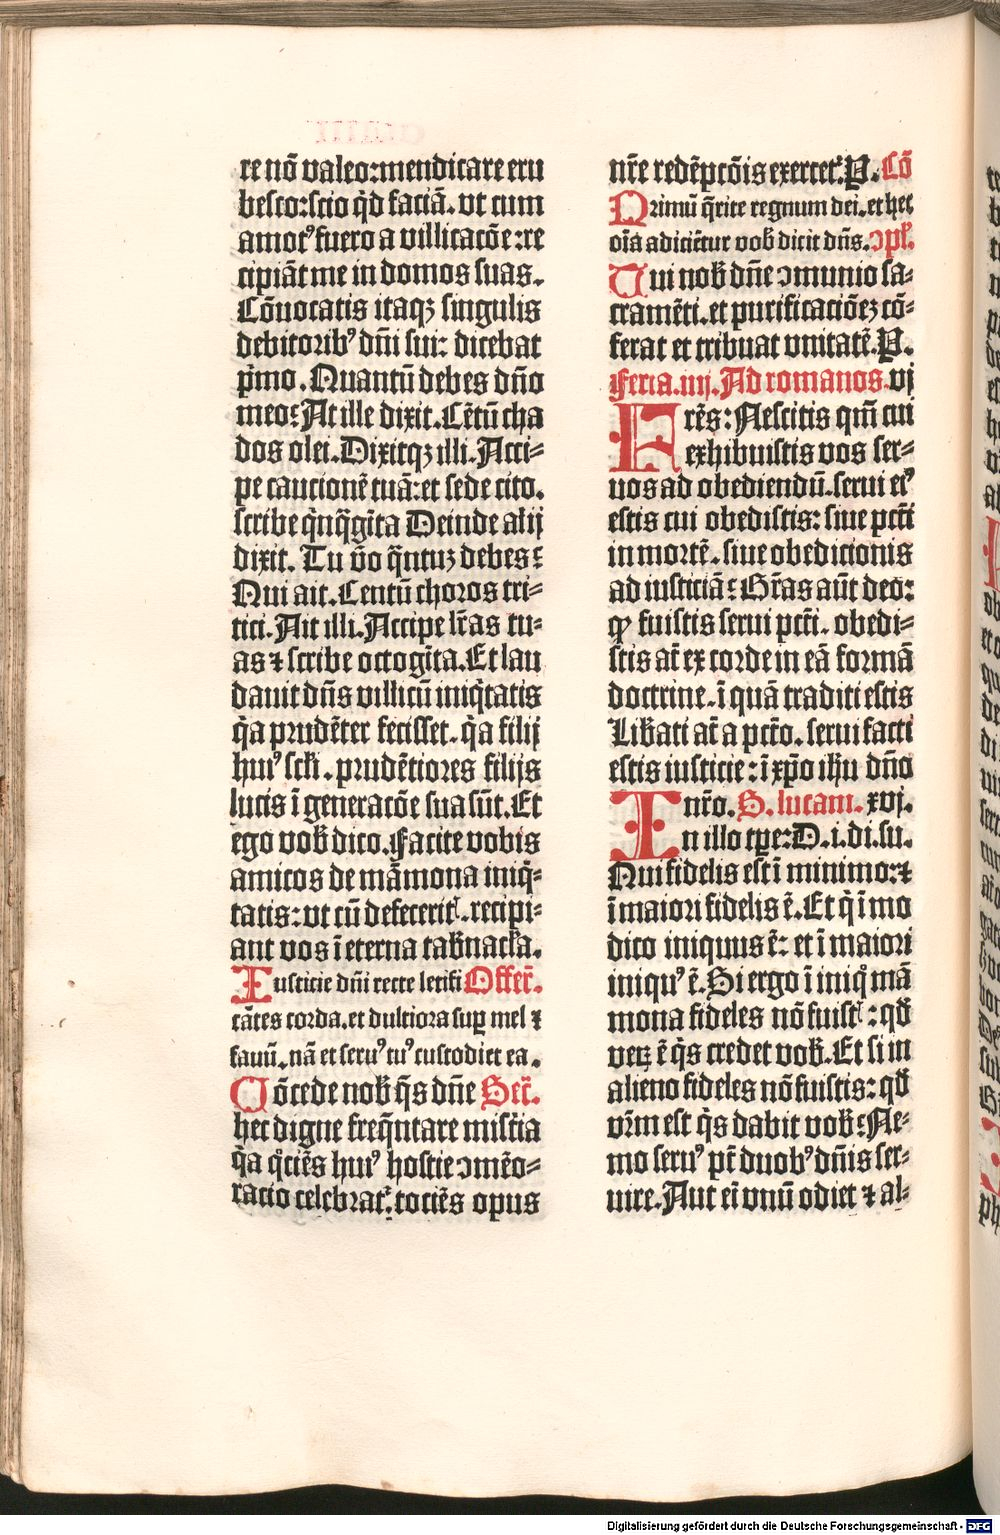 re nō valeo: mendicare eru
besco: scio q̄d faciā. vt cum
amot⁹ fuero a villicacōe: re
cipiāt me in domos suas.
Cōuocatis itaqꝫ singulis
debitorib⁹ dn̄i sui: dicebat
pͥmo. Quantū debes dn̄o
meo: At ille dixit. Cētū cha
dos olei. Dixitqꝫ illi. Acci⸗
pe caucionē tuā: et sede cito.
scribe qͥnq̄gīta Deinde alij
dixit. Tu v̄o q̄ntuꝫ debes:
Qui ait. Centū choros tri⸗
tici. Ait illi. Accipe lr̄as tu⸗
as ⁊ scribe octogīta. Et lau
dauit dn̄s villicū iniq̄tatis
q̄a prudēter fecisset. q̄a filij
hui⁹ scl̄i. prudētiores filijs
lucis ī generacōe sua sūt. Et
ego vob̄ dico. Facite vobis
amicos de māmona iniq̄⸗
tatis: vt cū defeceritꝭ. recipi⸗
ant vos ī eterna tab̄nacl̄a.
Iusticie dn̄i recte letifi Offer̄.
cātes corda. et dulciora suꝑ mel ⁊
fauū. nā et seru⁹ tu⁹ custodiet ea.
Cōcede nob̄ q̄s dn̄e Secr̄.
hec digne freq̄ntare mist̄ia
q̄a qͦciēs hui⁹ hostie ↄmēo⸗
racio celebrat᷑. tociēs opus
nr̄e redēpcōis exercet᷑. P. Cō
Primū q̄rite regnum dei. et hec
oīa adiciētur vob̄ dicit dn̄s. ↄpl̄.
Tui nob̄ dn̄e ↄmunio sa⸗
cramēti. et purificaciōeꝫ cō⸗
ferat et tribuat vnitatē. P.
Feria. iiij. Ad romanos. vj
Frēs: Nescitis qm̄ cui
exhibuistis vos ser⸗
uos ad obediendū. serui ei⁹
estis cui obedistis: siue pcti
in mortē. siue obedicionis
ad iusticiā: Gr̄as aūt deo:
qꝫ fuistis serui pcti. obedi⸗
stis at̄ ex corde in eā formā
doctrine. ī quā traditi estis
Lib̄ati at̄ a pcto. serui facti
estis iusticie: ī xp̄o ih̄u dn̄o
nr̄o. S. lucam. xvj.
In illo tp̄e: D. i. di. su.
Qui fidelis est ī minimo: ⁊
ī maiori fidelis ē. Et qͥ ī mo
dico iniquus ē: et ī maiori
iniqu⁹ ē. Si ergo ī iniqͦ mā
mona fideles nō fuistꝭ: qd̄
veꝝ ē qͥs credet vob̄. Et si in
alieno fideles nō fuistis: qd̄
vr̄m est qͥs dabit vob̄: Ne⸗
mo seru⁹ pt̄ duob⁹ dn̄is ser⸗
uire. Aut ei vnū odiet ⁊ al⸗
Digitalisierung gefördert durch die Deutsche Forschungsgemeinschaft - DFG